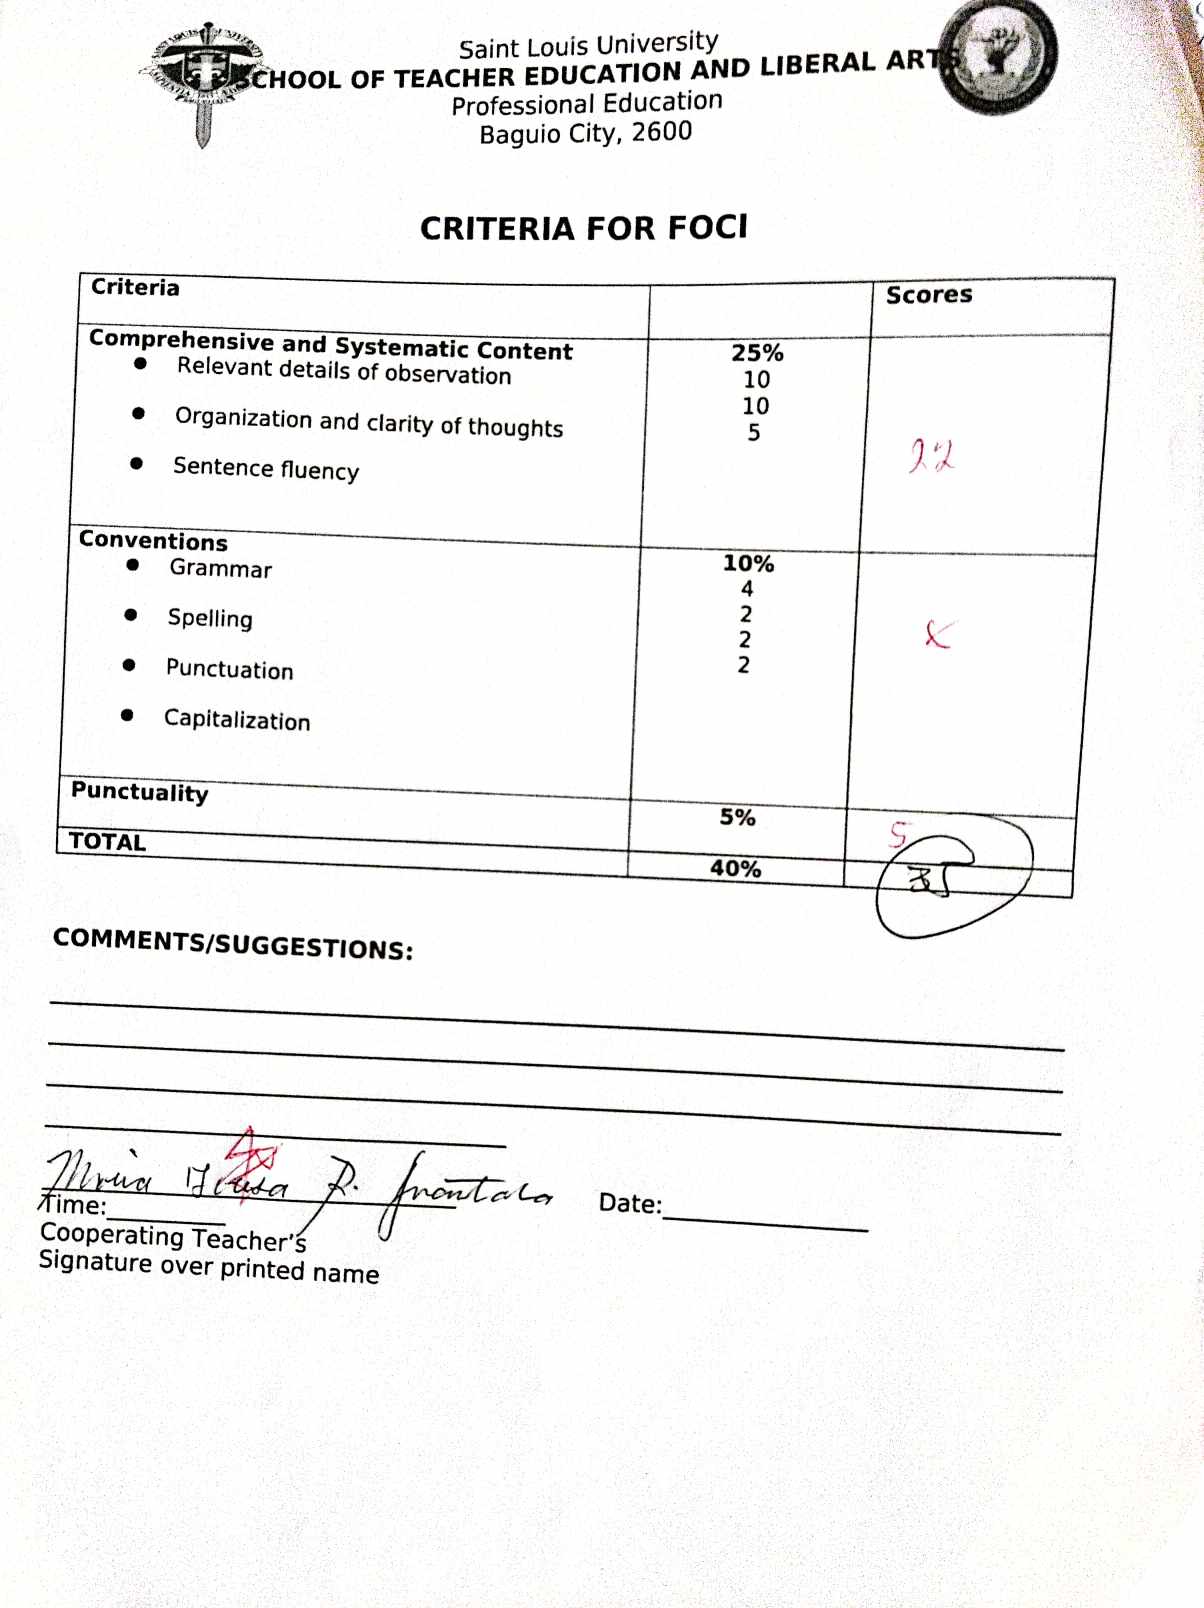 Saint Louis University
SCHOOL OF TEACHER EDUCATION AND LIBERAL ARTS
Professional Education
Baguio City, 2600
CRITERIA FOR FOCI
Criteria Scores
Comprehensive and Systematic Content 25%
• Relevant details of observation 10
• Organization and clarity of thoughts 10
• Sentence fluency 5
22
Conventions 10%
• Grammar 4
• Spelling 2
• Punctuation 2
• Capitalization 2
Punctuality 5% 5
TOTAL 40% 35
COMMENTS/SUGGESTIONS:
R.
Time: Date:
Cooperating Teacher's
Signature over printed name